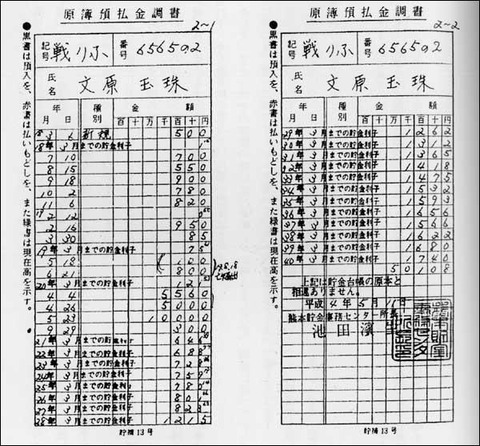 原簿預払金調書
2~1
●黒書は預入を、赤書は払いもどしを、また緑書は現在高を示す。
記号 戦りふ 番号 656592
氏名 文原玉珠
年 月 日 種別 金額
百 十 万 千 百 十 円
18 3 6 新規 500
18年 3月までの貯金利子
7 10 700
8 15 550
9 18 900
10 2 780
11 6 820
2 16 950
3 30 85
19年 3月までの貯金利子
5 18 100
6 21 800
20年 3月までの貯金利子
4 4 5560
4 26 5000
5 23 10000
9 29 300
21年 3月までの貯金利子
22年 3月までの貯金利子
23年 3月までの貯金利子
24年 3月までの貯金利子
25年 3月までの貯金利子
26年 3月までの貯金利子
27年 3月までの貯金利子
28年 3月までの貯金利子 1215
貯補13号
原簿預払金調書
2~2
●黒書は預入を、赤書は払いもどしを、また緑書は現在高を示す。
記号 戦りふ 番号 656592
氏名 文原玉珠
年 月 日 種別 金額
百 十 万 千 百 十 円
29年 3月までの貯金利子 1262
30年 3月までの貯金利子 1312
31年 3月までの貯金利子 1365
32年 3月までの貯金利子 1418
33年 3月までの貯金利子 1473
34年 3月までの貯金利子 1532
35年 3月までの貯金利子 1593
36年 3月までの貯金利子 1656
37年 3月までの貯金利子 1556
38年 3月までの貯金利子
39年 3月までの貯金利子 1680
40年 3月までの貯金利子 1740
50108
上記は貯金台帳の原本と
相違ありません。
平成4年5月
熊本貯金事務センター所長
池田
貯補13号